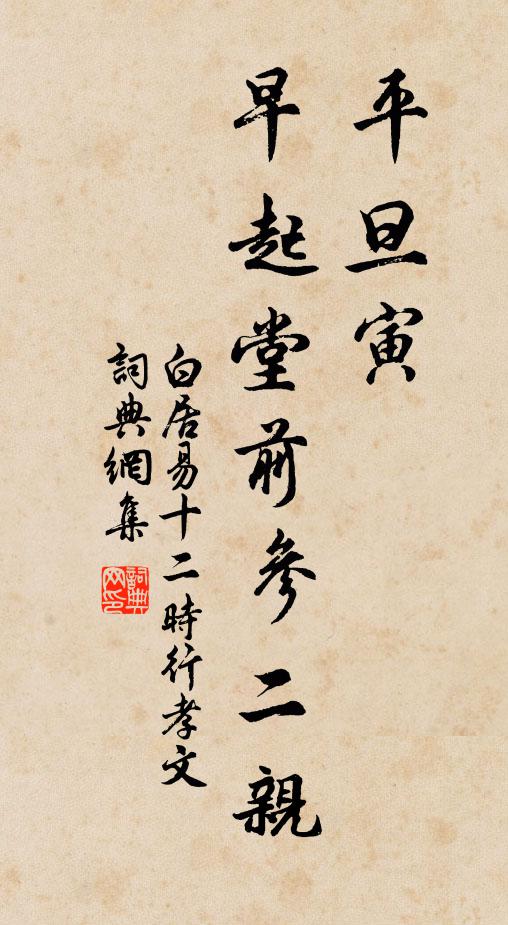 平旦寅
早起堂前參二親
白居易十二時行孝文
詞典網集
詞典網印